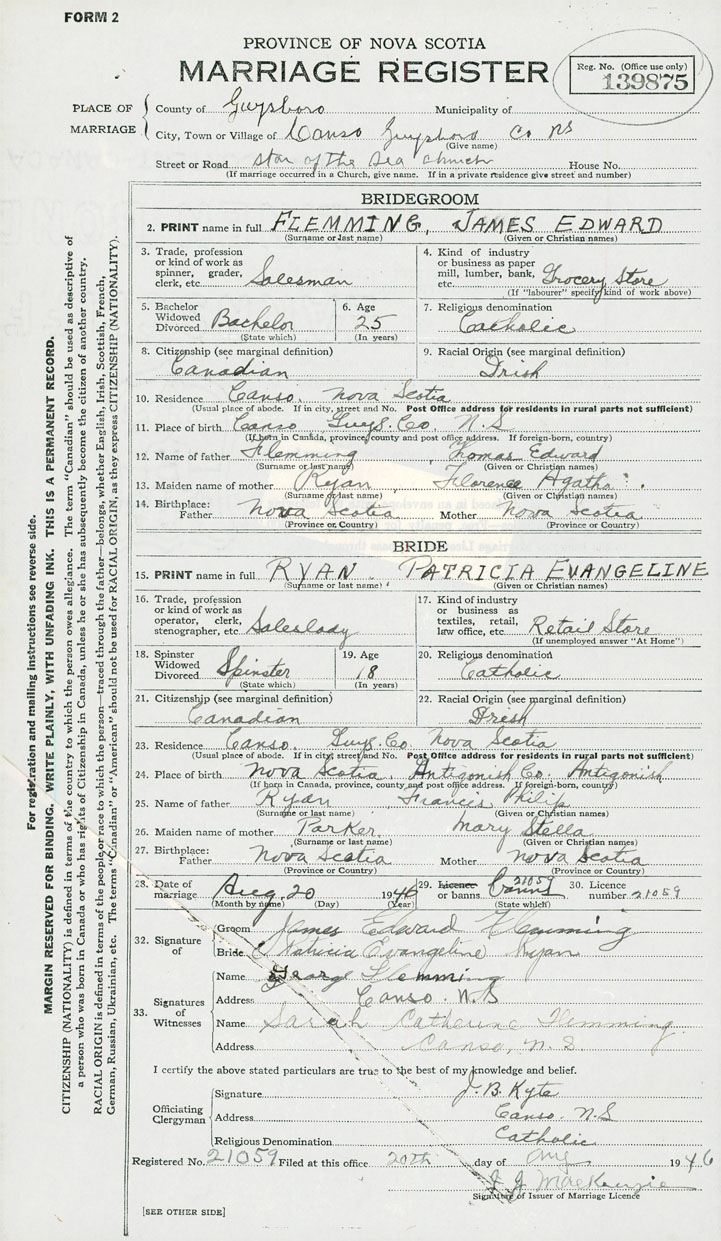 FORM 2
PROVINCE OF NOVA SCOTIA
MARRIAGE REGISTER
Reg. No. (Office use only)
139875
PLACE OF MARRIAGE
County of Guysboro Municipality of
City, Town or Village of Canso Guysboro Co NS
(Give name)
Street or Road Star of the Sea Church House No.
(If marriage occurred in a Church, give name. If in a private residence give street and number)
BRIDEGROOM
2. PRINT name in full FLEMMING, JAMES EDWARD
(Surname or last name) (Given or Christian names)
3. Trade, profession or kind of work as spinner, grader, clerk, etc. Salesman
4. Kind of industry or business as paper mill, lumber, bank, etc. Grocery Store
(If "labourer" specify kind of work above)
5. Bachelor Widowed Divorced Bachelor
(State which)
6. Age 25
(In years)
7. Religious denomination
Catholic
8. Citizenship (see marginal definition)
Canadian
9. Racial Origin (see marginal definition)
Irish
10. Residence Canso, Nova Scotia
(Usual place of abode. If in city, street and No. Post Office address for residents in rural parts not sufficient)
11. Place of birth Canso Guys. Co. N.S
(If born in Canada, province, county and post office address. If foreign-born, country)
12. Name of father Flemming Thomas Edward
(Surname or last name) (Given or Christian names)
13. Maiden name of mother Ryan Florence Agatha
(Surname or last name) (Given or Christian names)
14. Birthplace: Father Nova Scotia Mother Nova Scotia
(Province or Country) (Province or Country)
BRIDE
15. PRINT name in full RYAN PATRICIA EVANGELINE
(Surname or last name) (Given or Christian names)
16. Trade, profession or kind of work as operator, clerk, stenographer, etc. Saleslady
17. Kind of industry or business as textiles, retail, law office, etc. Retail Store
(If unemployed answer "At Home")
18. Spinster Widowed Divorced Spinster
(State which)
19. Age 18
(In years)
20. Religious denomination
Catholic
21. Citizenship (see marginal definition)
Canadian
22. Racial Origin (see marginal definition)
Iresh
23. Residence Canso, Guys. Co Nova Scotia
(Usual place of abode. If in city, street and No. Post Office address for residents in rural parts not sufficient)
24. Place of birth Nova Scotia, Antigonish Co. Antigonish
(If born in Canada, province, county and post office address. If foreign-born, country)
25. Name of father Ryan Francis Philip
(Surname or last name) (Given or Christian names)
26. Maiden name of mother Parker Mary Stella
(Surname or last name) (Given or Christian names)
27. Birthplace: Father Nova Scotia Mother Nova Scotia
(Province or Country) (Province or Country)
28. Date of marriage Aug. 20 1946
(Month by name) (Day) (Year)
29. Licence or banns Banns 21059
(State which)
30. Licence number 21059
32. Signature of
Groom James Edward Flemming
Bride Patricia Evangeline Ryan
33. Signatures of Witnesses
Name George Flemming
Address Canso. N.S
Name Sarah Catherine Flemming
Address Canso, N.S.
I certify the above stated particulars are true to the best of my knowledge and belief.
Officiating Clergyman
Signature J. B. Kyte
Address Canso. N.S
Religious Denomination Catholic
Registered No. 21059 Filed at this office 20th day of Aug 1946
J. J. MacKenzie
Signature of Issuer of Marriage Licence
[SEE OTHER SIDE]
For registration and mailing instructions see reverse side.
MARGIN RESERVED FOR BINDING. WRITE PLAINLY, WITH UNFADING INK. THIS IS A PERMANENT RECORD.
CITIZENSHIP (NATIONALITY) is defined in terms of the country to which the person owes allegiance. The term "Canadian" should be used as descriptive of
a person who was born in Canada or who has rights of Citizenship in Canada, unless he or she has subsequently become the citizen of another country.
RACIAL ORIGIN is defined in terms of the people or race to which the person—traced through the father—belongs, whether English, Irish, Scottish, French,
German, Russian, Ukrainian, etc. The terms "Canadian" or "American" should not be used for RACIAL ORIGIN, as they express CITIZENSHIP (NATIONALITY).